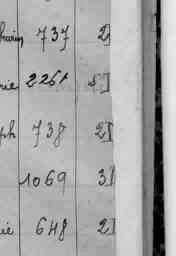 737 2]
2261 5]
ph 738 2]
1069 3]
ie 648 2]